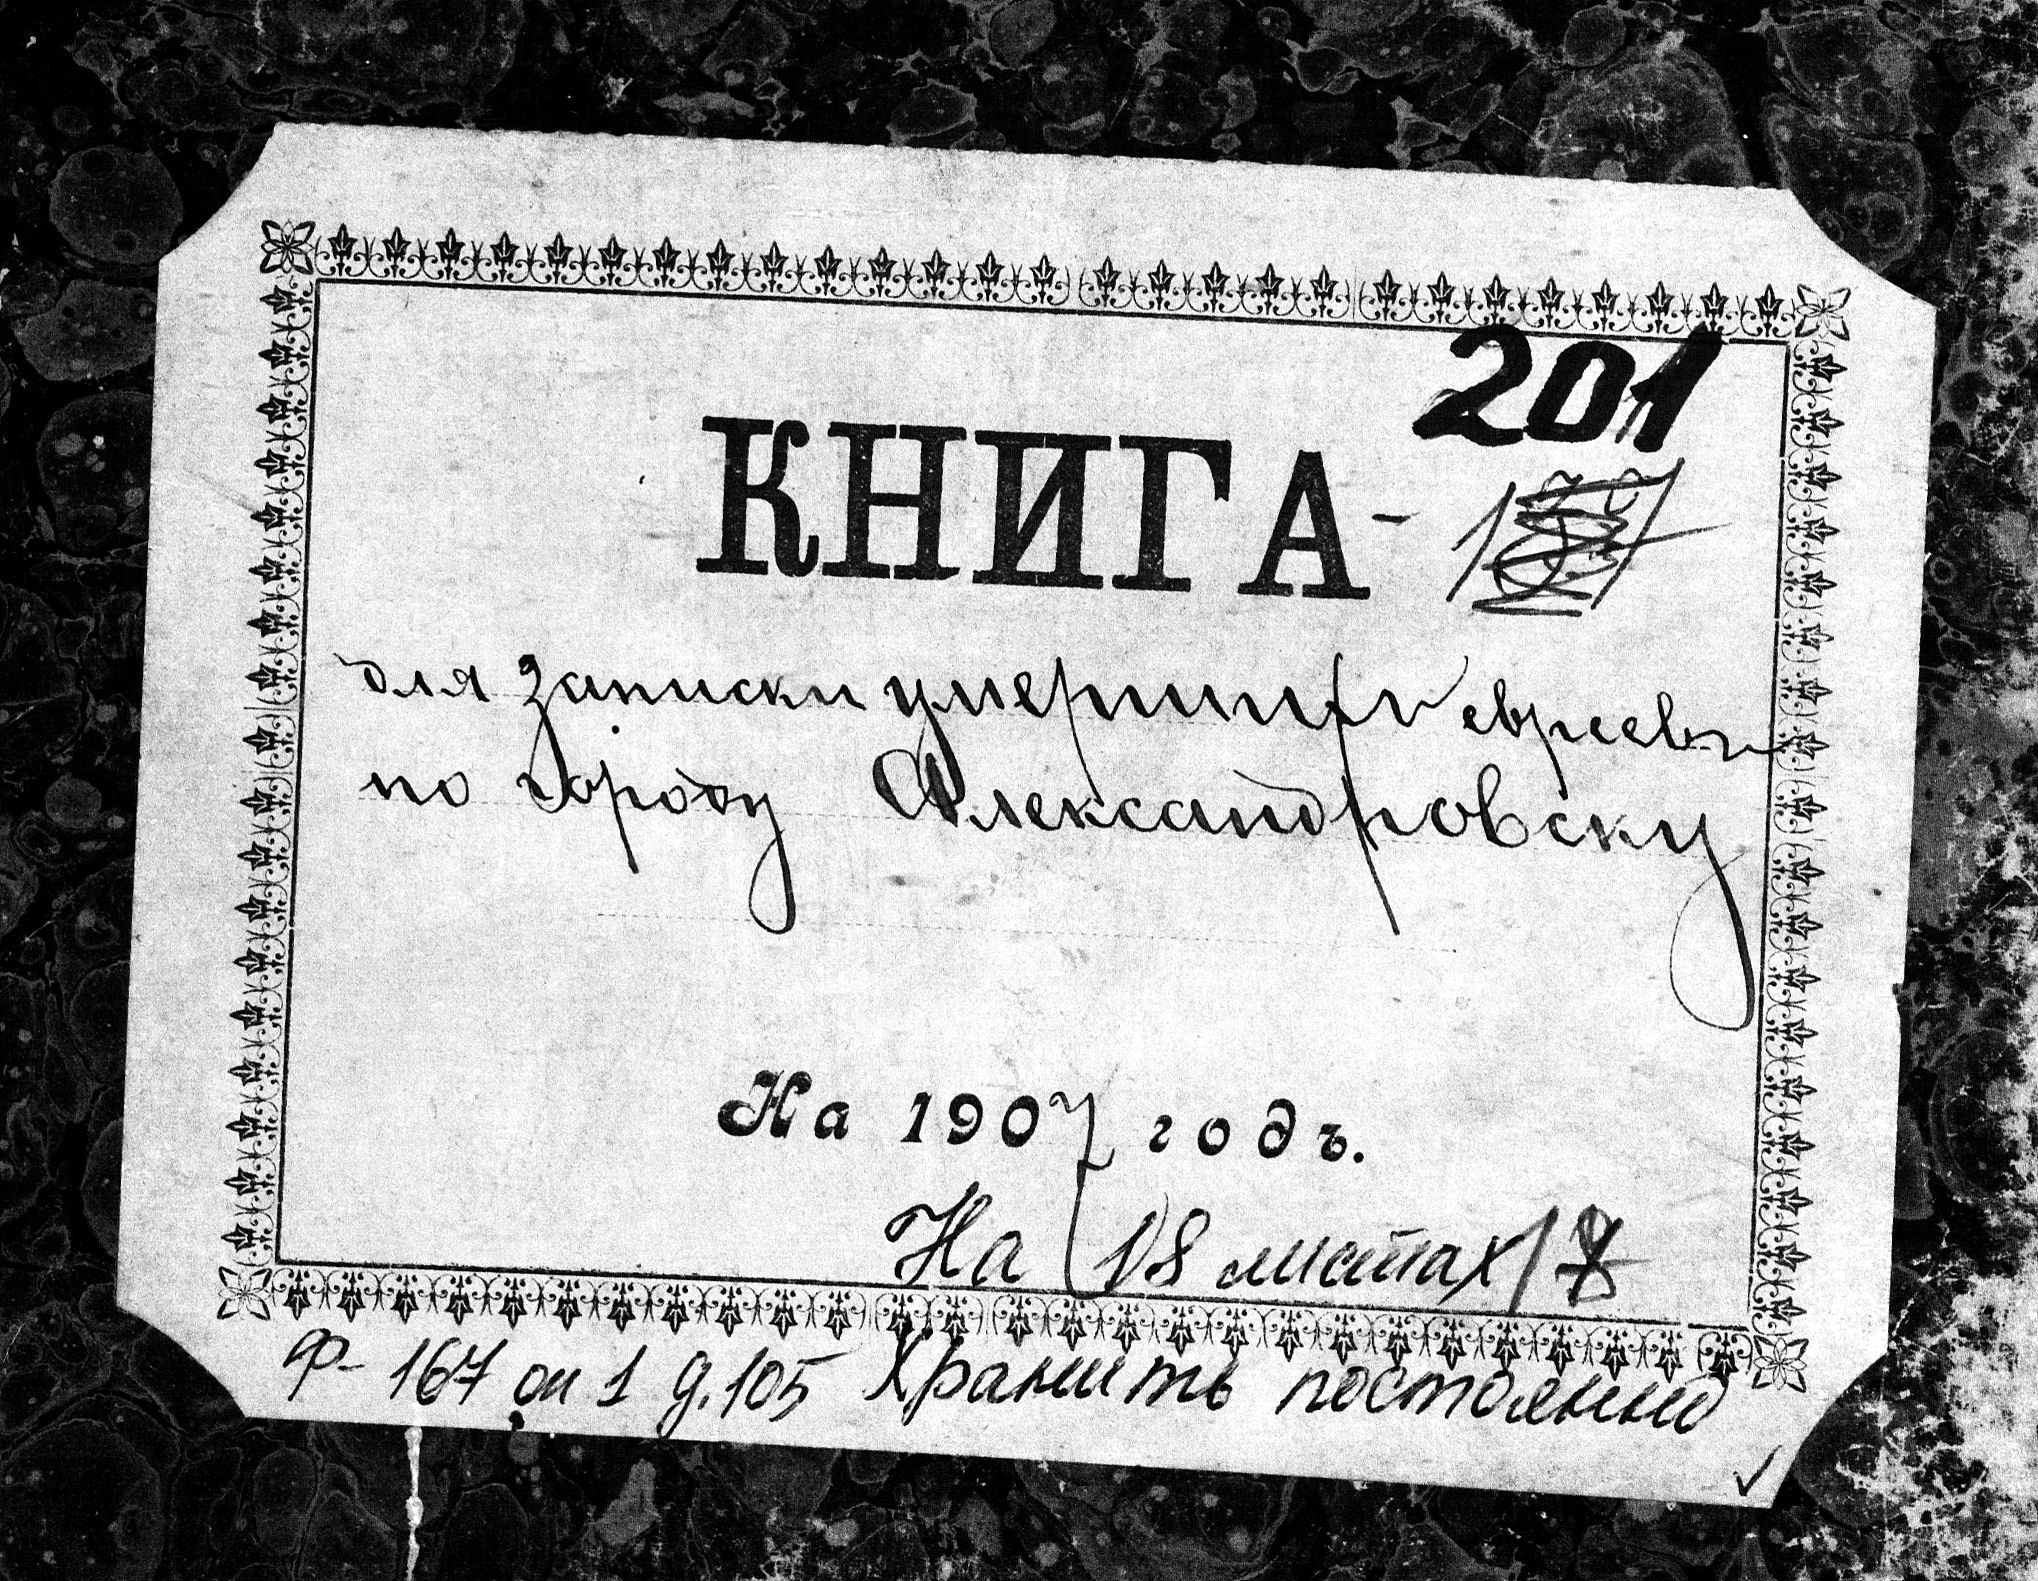 201
КНИГА-
для записки умершихъ евреевъ
по городу Александровску
На 1907 годъ.
На 18 листах
Ф- 167 оп 1 д. 105 Хранить постоянно